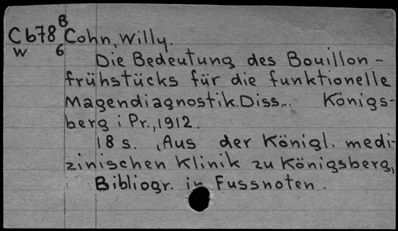 B
Cb78 Cohn, Willy.
w 6
Die Bedeutung des Bouillon-
frühstücks für die funktionelle
Magendiagnostik. Diss... Königs-
berg i Pr., 1912.
18 s. (Aus der Königl. medi-
zinischen Klinik zu Königsberg,
Bibliogr. in Fussnoten.